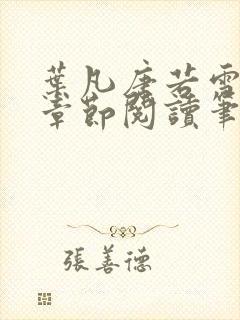 葉凡唐若雪
章節閱讀筆
張善德